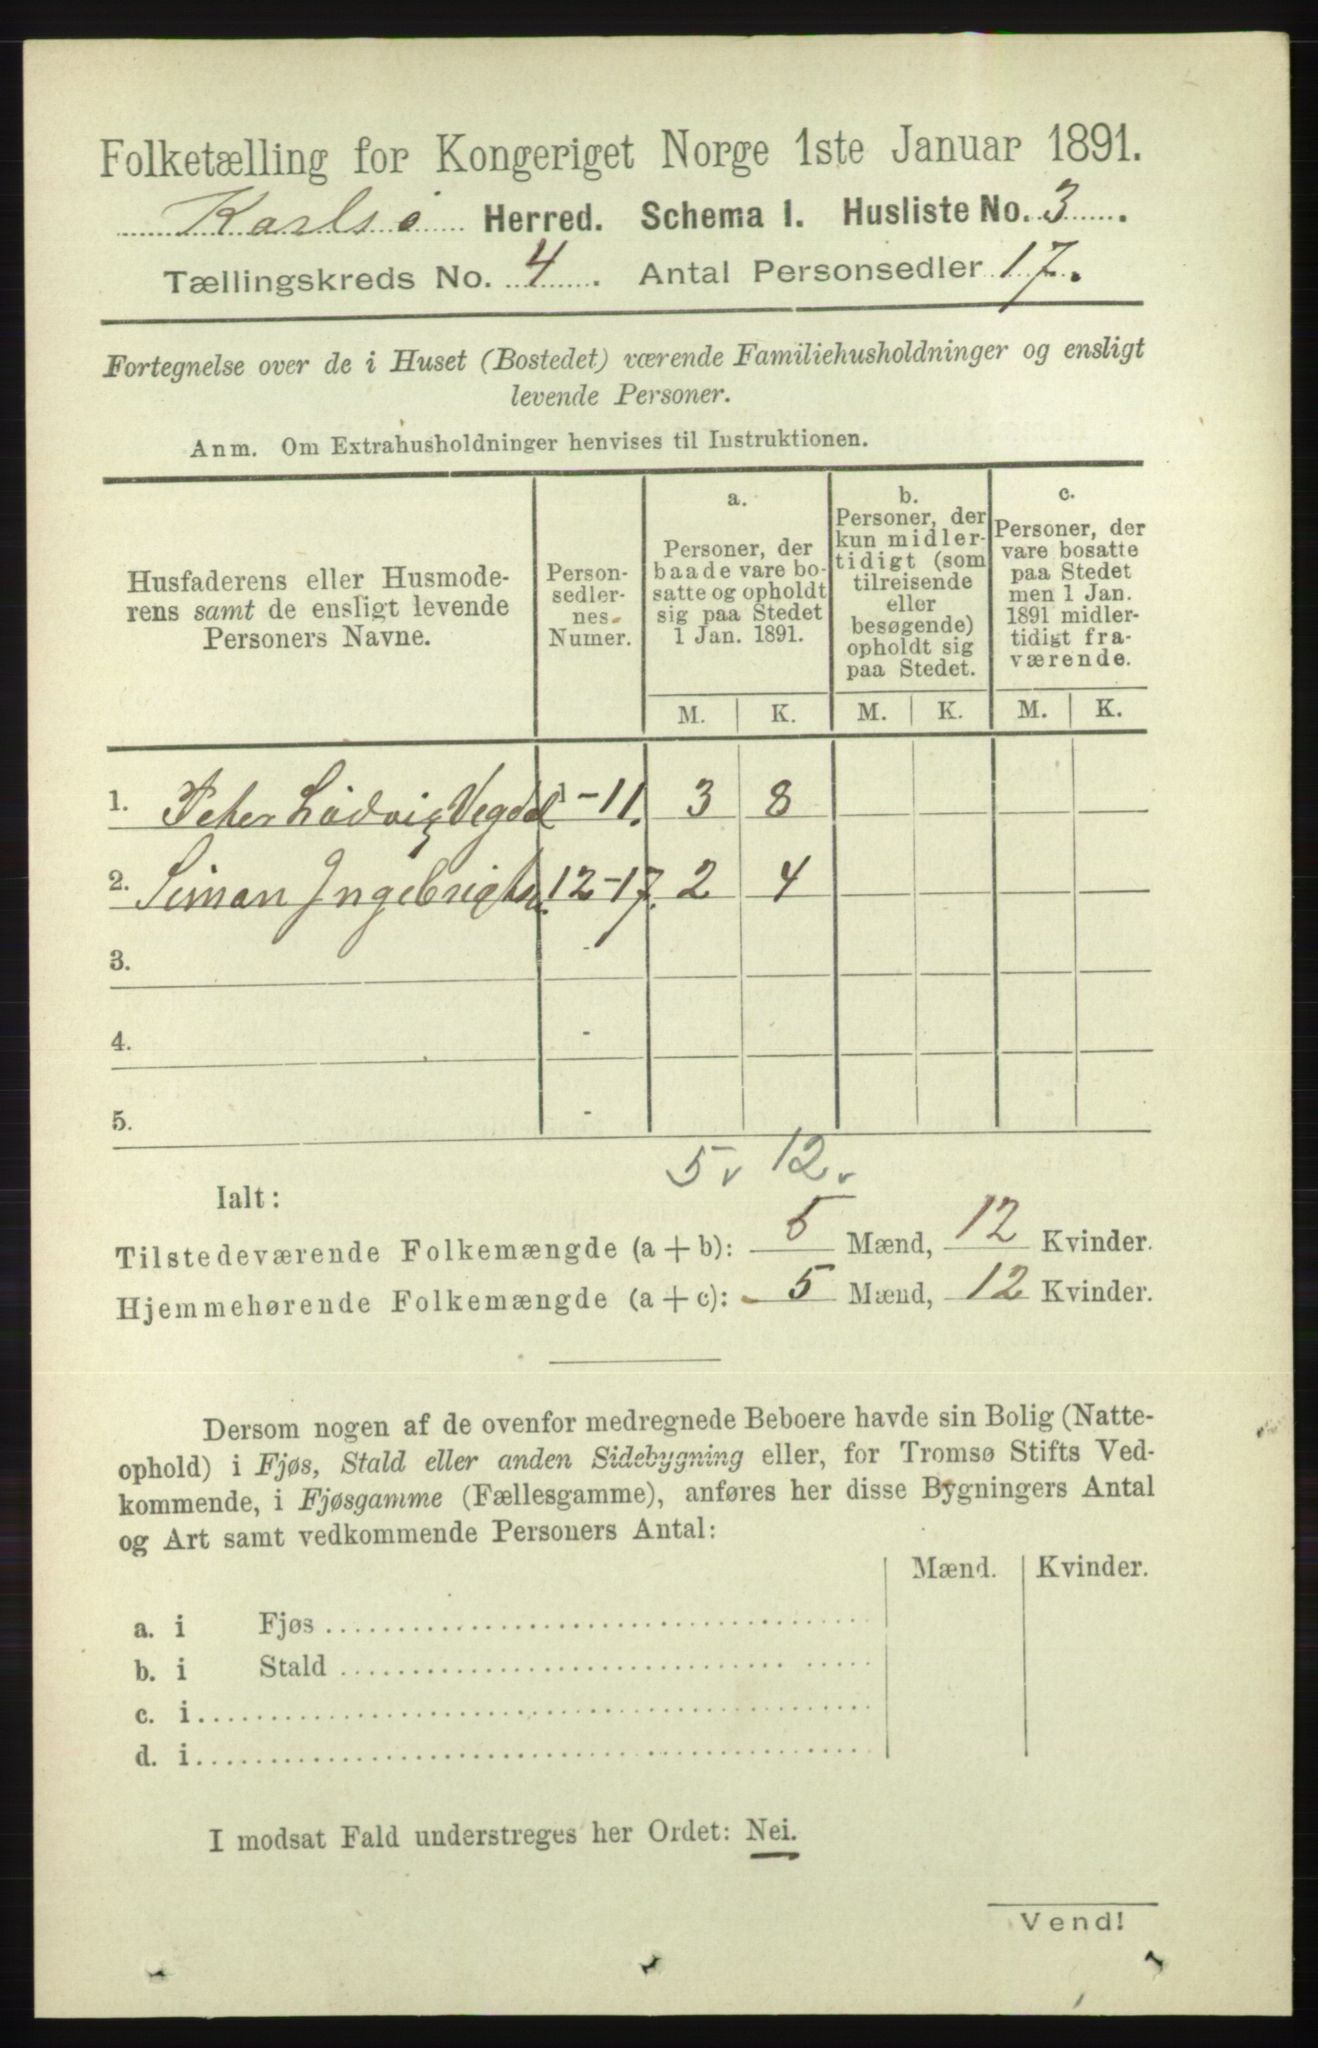 Folketælling for Kongeriget Norge 1ste Januar 1891.
Karlsø Herred. Schema 1. Husliste No. 3.
Tællingskreds No. 4. Antal Personsedler 17.
Fortegnelse over de i Huset (Bostedet) værende Familiehusholdninger og ensligt
levende Personer.
Anm. Om Extrahusholdninger henvises til Instruktionen.
Husfaderens eller Husmode-
rens samt de ensligt levende
Personers Navne.
Person-
sedler-
nes
Numer.
a.
Personer, der
baade vare bo-
satte og opholdt
sig paa Stedet
1 Jan. 1891.
b.
Personer, der
kun midler-
tidigt (som
tilreisende
eller
besøgende)
opholdt sig
paa Stedet.
c.
Personer, der
vare bosatte
paa Stedet
men 1 Jan.
1891 midler-
tidigt fra-
værende.
M. K. M. K. M. K.
1. Peter Ludvig Vegdal 1-11. 3 8
2. Siman Ingebrigtsn. 12-17. 2 4
3. -
4. -
5. -
5 12
Ialt:
Tilstedeværende Folkemængde (a+b): 5 Mænd, 12 Kvinder.
Hjemmehørende Folkemængde (a+c): 5 Mænd, 12 Kvinder.
Dersom nogen af de ovenfor medregnede Beboere havde sin Bolig (Natte-
ophold) i Fjøs, Stald eller anden Sidebygning eller, for Tromsø Stifts Ved-
kommende, i Fjøsgamme (Fællesgamme), anføres her disse Bygningers Antal
og Art samt vedkommende Personers Antal:
Mænd. Kvinder.
a. i Fjøs
b. i Stald
c. i
d. i
I modsat Fald understreges her Ordet: Nei.
Vend!